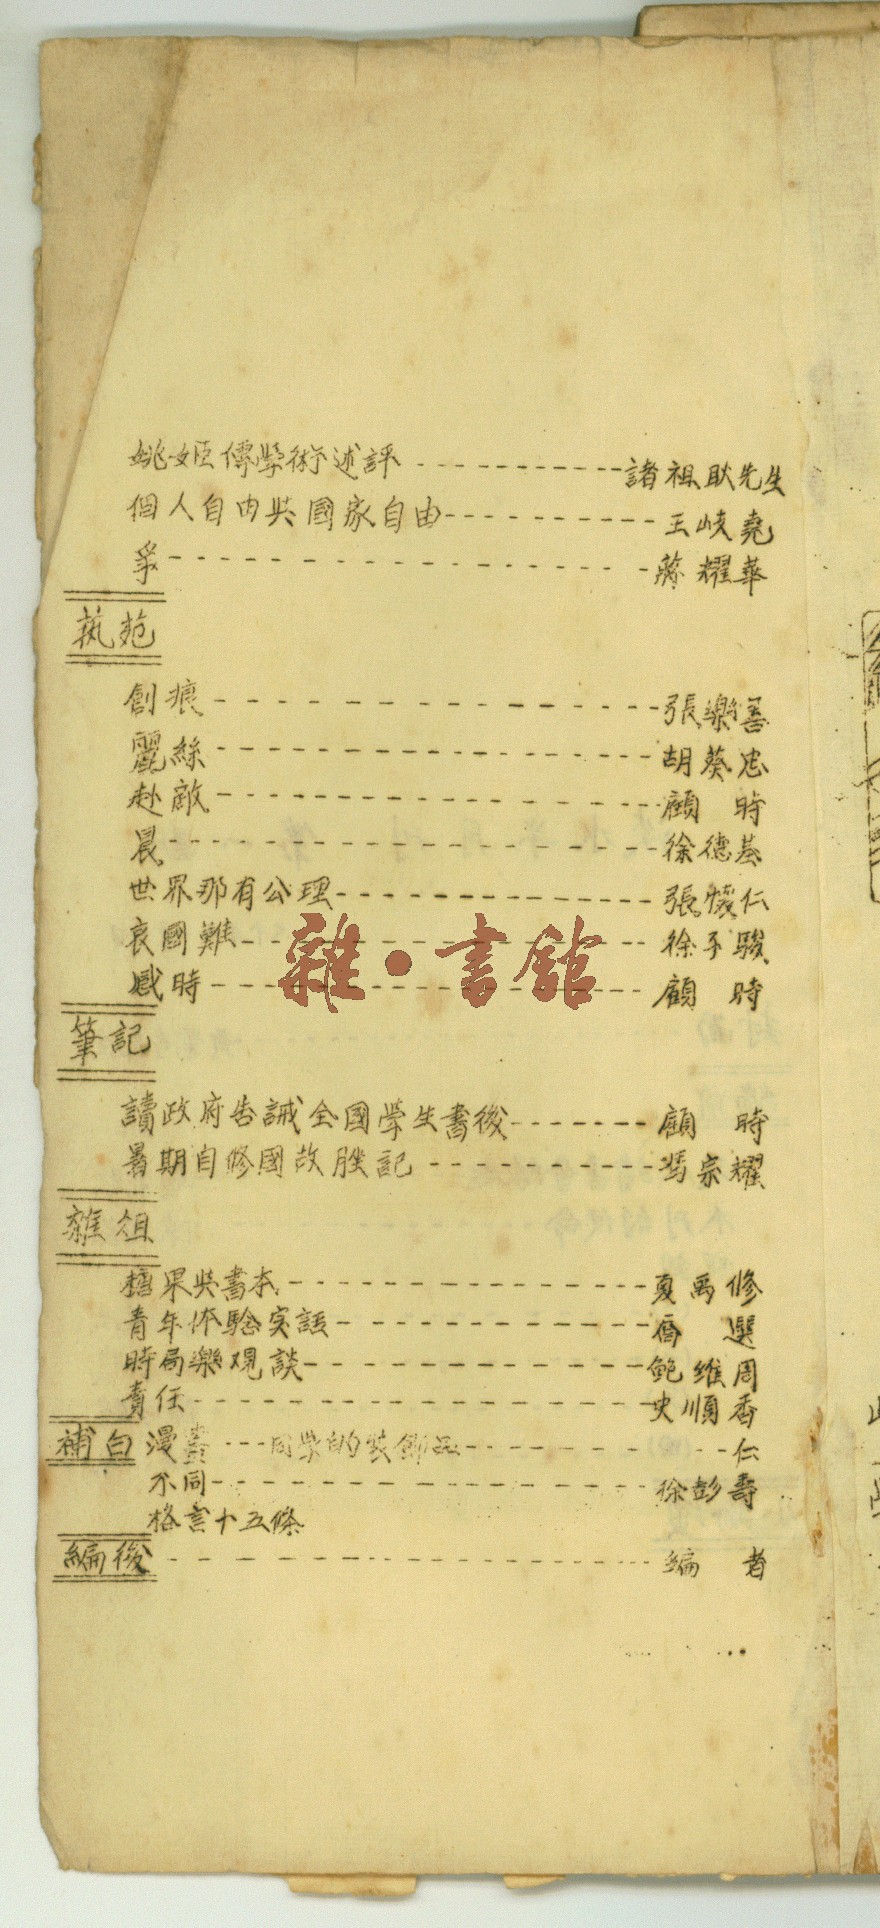 姚姬傳學術述評----------諸祖耿先生
個人自由與國家自由----------王岐堯
爭----------蔣耀華
藝苑
創痕----------張樂善
麗絲----------胡葵忠
赴敵----------顧時
晨----------徐德基
世界那有公理----------張懷仁
哀國難----------徐子駿
感時----------顧時
雜·書館
筆記
讀政府告誡全國學生書後-------顧時
暑期自修國故脞記----------馮宗耀
雜俎
糖果與書本----------夏禹修
青年体驗实語----------選
時局樂覌談----------鲍維周
責任----------史順香
補白 漫畫---同学的装飾品----------仁
不同----------徐彭壽
格言十五條
編後----------編者